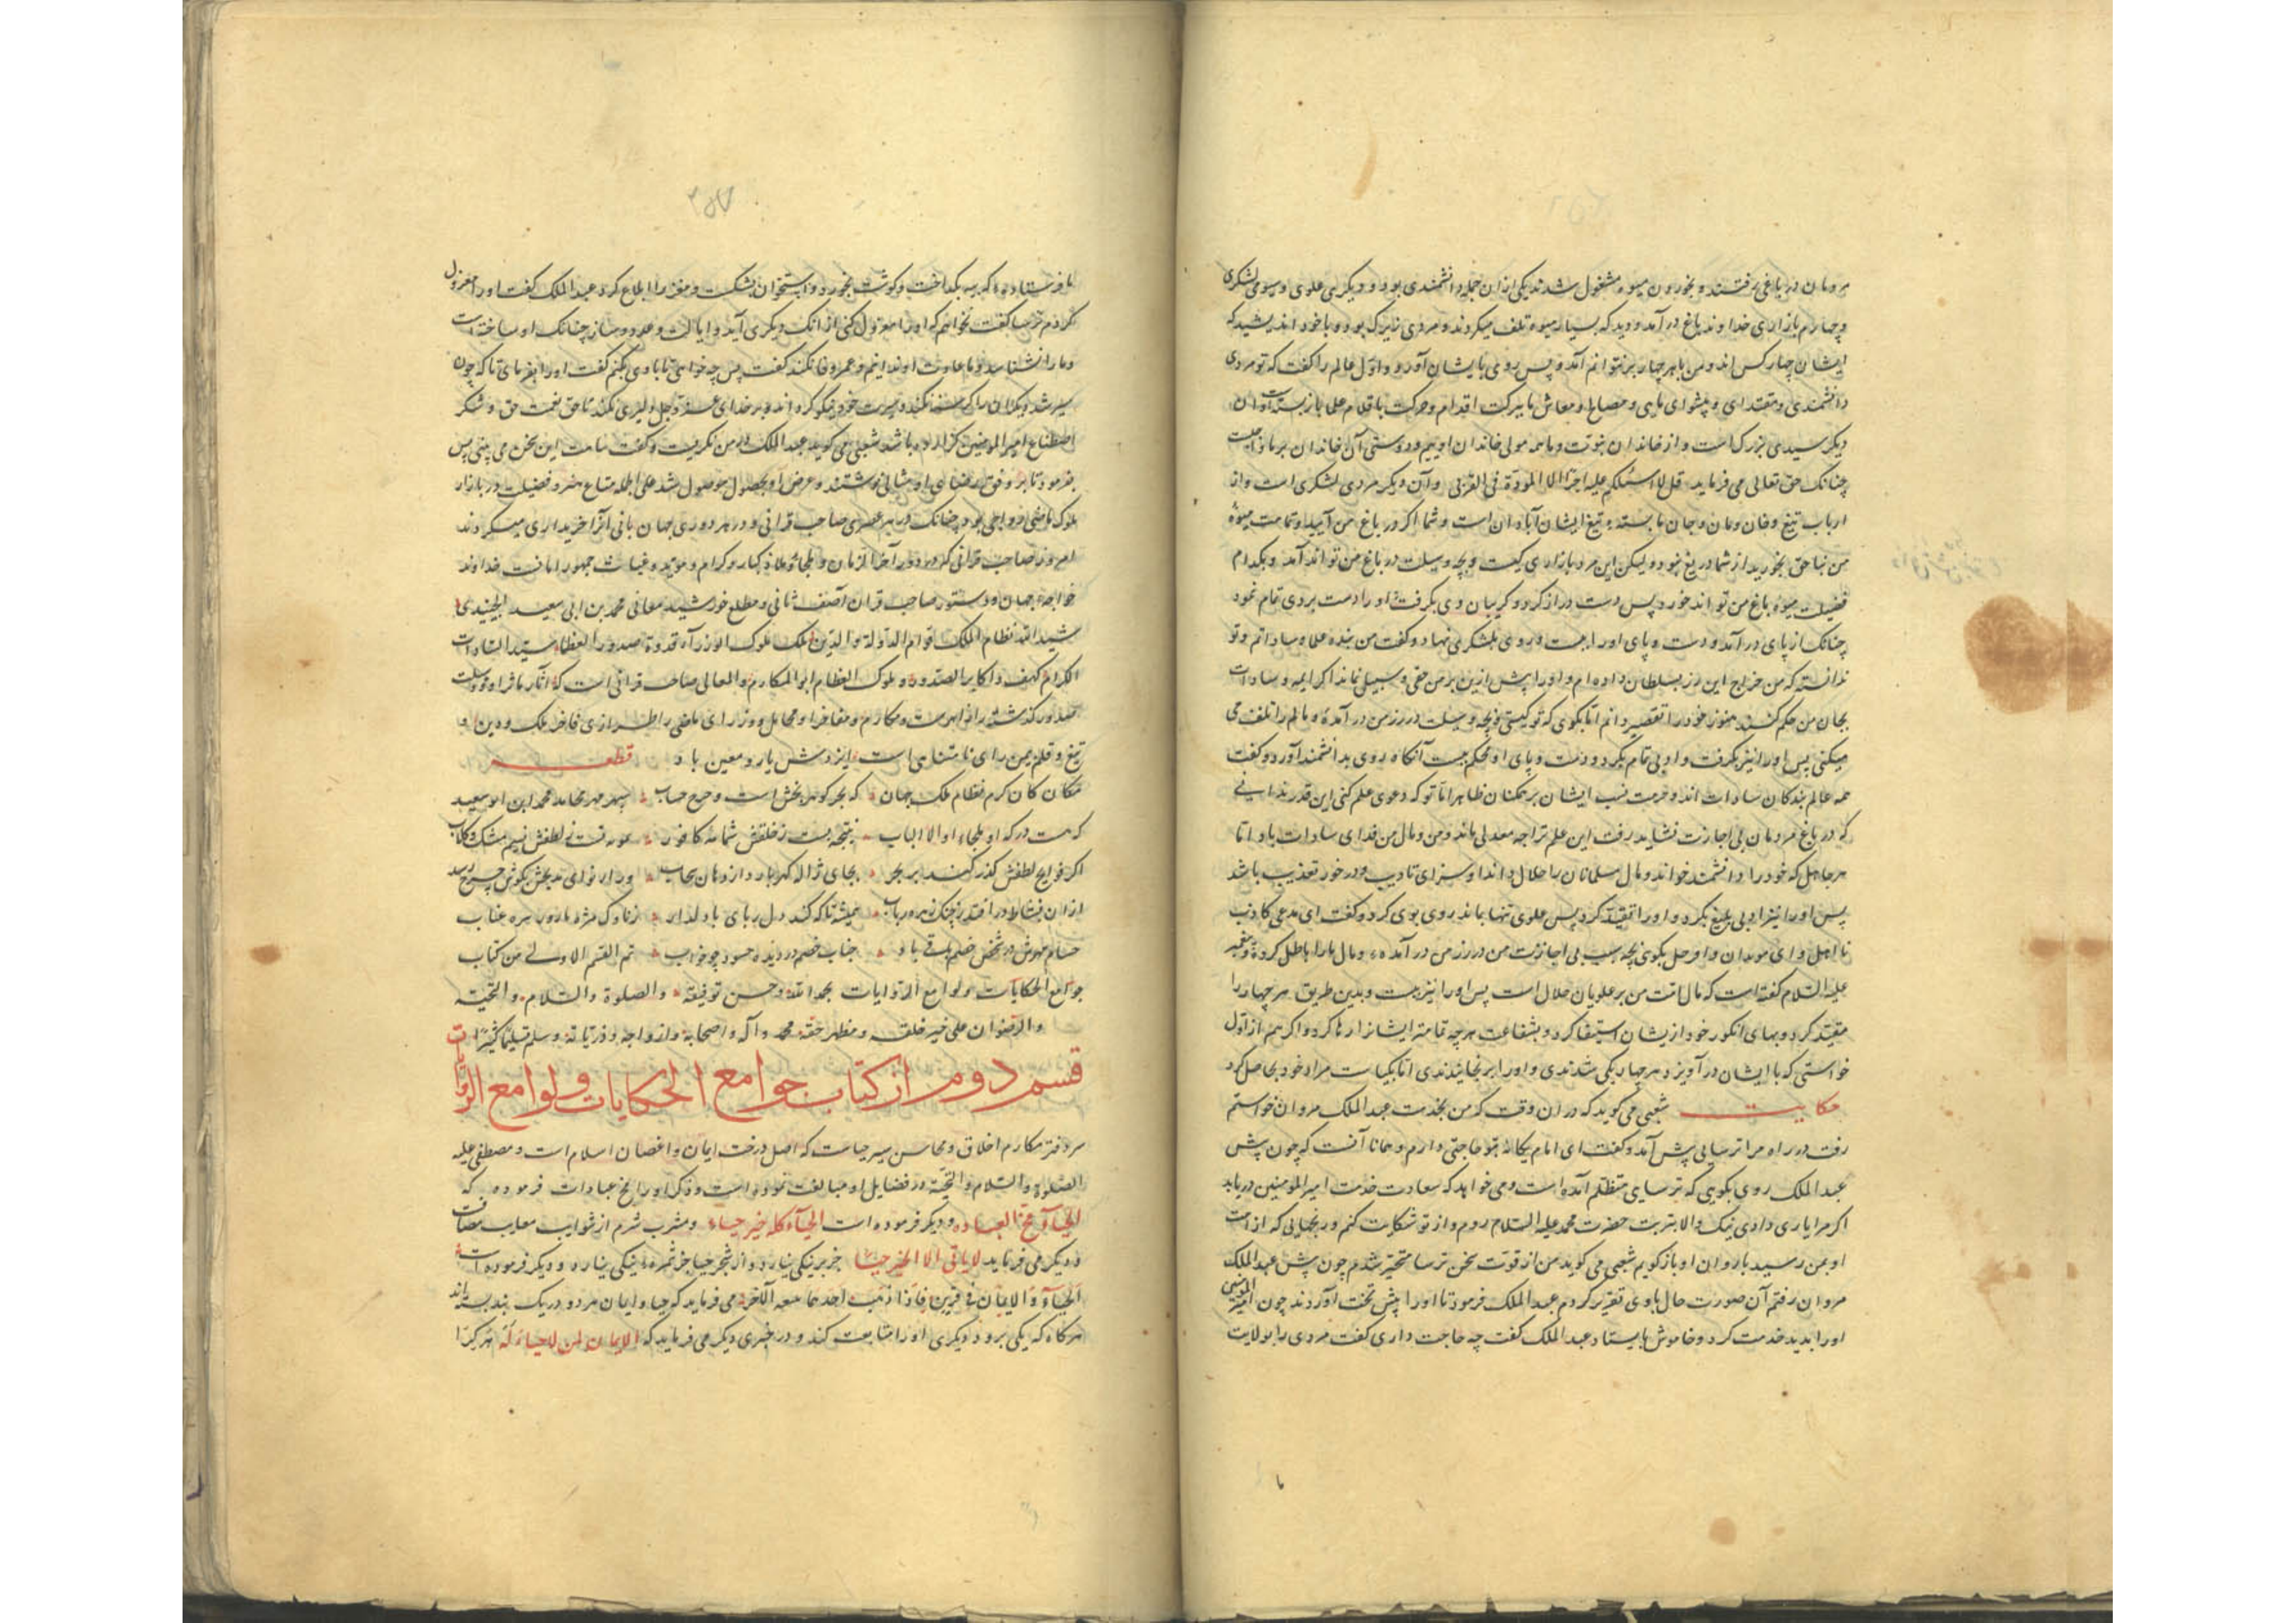 در باغی رفتند و بخوردن میوه مشغول شدند یکی از ان جمله دانشمندی بود و دیگری علوی و سیومی لشکری
و چهارم بازاری خداوند باغ در آمد و دید که بسیار میوه تلف میکردند و مردی زیرک بود و با خود اندیشید که
ایشان چهار کس اند و من با هر چهار بر نتوانم آمد پس روی بایشان آورد و اول عالم را کفت که تو مردی
دانشمندی و مقتدای و پیشوای مایی و مصالح معاش ما ببرکت اقدام و حرکت اقلام علما باز بسته است و ان
دیکر سیدی بزرک است و از خاندان نبوت و ما همه مولی خاندان اوییم و دوستی آن خاندان بر ما واجبست
چنانک حق تعالی می فرماید قل لا اسئلکم علیه اجرا الا المودة فی القربی و آن دیکر مردی لشکری است و از
ارباب تیغ و خان و مان و جان ما بسته تیغ ایشان آبادان است و شما اکر در باغ من آیید و تمامت میوهٔ
من بناحق بخورید از شما دریغ نبود و لیکن این مرد بازاری کیست و بچه وسیلت در باغ من تواند آمد و بکدام
فضیلت میوهٔ باغ من تواند خورد پس دست دراز کرد و کریبان وی بکرفت و او را دست بردی تمام نمود
چنانک از پای در آمد و دست و پای او را ببست و روی بلشکری نهاد و کفت من بنده علما و ساداتم و تو
ندانسته که من خراج این رز بسلطان داده ام و او را پیش ازین بر من حقی و سبیلی نماند اکر ایمه و سادات
بجان من حکم کنند هنوز خود را تقصیر دانم اما بکوی که تو کیستی و بچه وسیلت در رز من در آمدهٔ و مالم را تلف می
میکنی پس او را نیز بکرفت و ادبی تمام بکرد و دست و پای او محکم ببست آنکاه روی بدانشمند آورد و کفت
همه عالم بندکان سادات اند و حرمت نسب ایشان بر همکنان ظاهر اما تو که دعوی علم کنی این قدر ندانی
که در باغ مردمان بی اجازت نشاید رفت این علم ترا چه محل ماند و من و مال من فدای سادات باد اما
هر جاهل که خود را دانشمند خواند و مال مسلمانان را حلال داند او سزای تادیب و در خور تعذیب باشد
پس او را نیز ادبی بلیغ بکرد و او را مقید کرد پس علوی تنها بماند روی بوی کرد و کفت ای مدعی کاذب
نا اهل و ای بکوی بچه سبب بی اجازت من در رز من در آمدهٔ و مال مارا باطل کرد پیغمبر
علیه السلام کفته است که مال امت من بر علویان حلال است پس او را نیز ببست و بدین طریق هر چهار را
مقید کرد و بهای انکور خود از یشان استیفا کرد و بشفاعت هر چه تمامتر ایشانرا رها کرد و اکر هم از اول
خواستی که با ایشان در آویزد هر چهار یکی شدندی و او را برنجانیدندی اما بکیاست مراد خود بحاصل کرد
حکایت شعبی می کوید که در ان وقت که من بخدمت عبد الملک مروان خواستم
رفت در راه مرا ترسایی پیش آمد و کفت ای امام یکانه بتو حاجتی دارم و همانا آنست که چون پیش
عبد الملک روی بکویی که ترسایی متظلم آمده است و می خواهد که سعادت خدمت امیر المومنین در یابد
اکر مرا یاری دادی نیک و الا بتربت حضرت محمد علیه السلام روم و از تو شکایت کنم و رنجهایی که از امت
او بمن رسید باروان او باز کویم شعبی می کوید من از قوت سخن ترسا متحیر شدم چون پیش عبد الملک
مروان رفتم آن صورت حال با وی تقریر کردم عبد الملک فرمود تا او را پیش تخت آوردند چون امیر المومنین
او را بدید خدمت کرد و خاموش بایستاد عبد الملک کفت چه حاجت داری کفت مردی را بولایت
۲۵۷
ما فرستاده که پیه بکداخت و کوشت بخورد و استخوان بشکست و مغز را ابلاغ کرد عبد الملک کفت او را معزول
کردم ترسا کفت نخواهم که او را معزول کنی از انک دیکری آید و ایالت و عدد و ساز چنانک او ساخته است
و ما را نشناسد و ما عادت او ندانیم و عمر وفا نکند کفت پس چه خواهی تا با وی بکنم کفت او را بفرمای تا که چون
سیر شد دیکران را کرسنه نکند و سیرت خود نیکو کرداند و بر خدای عز و جل دلیری نکند تا حق نعمت حق و شکر
اصطناع امیر المومنین کزارده باشد شعبی می کوید عبد الملک در من نکریست و کفت این سخن می بینی پس
بفرمود تا بر وفق رضای او مثالی نوشتند و غرض او بحصول موصول شد علی الجمله متاع هنر و فضیلت در بازار
ملوک ماضی رواجی بود چنانک در هر عصری صاحب قرانی و در هر دوری جهان بانی آنرا خریداری میکردند
امروز صاحب قرانی که در دور آخر الزمان و ملجا و ملاذ کبار و کرام و موید و غیاث جمهور انامست خداوند
خواجهٔ جهان و دستور صاحب قران آصف ثانی و مطلع خورشید معانی محمد بن ابی سعید الجنیدی
شید الله نظام الملک قوام الدولة و الدین ملک ملوک الوزرآء قدوة صدور العظام سید السادات
الکرام کهف الاکابر الصدور و ملوک العظام ابو المکارم و المعالی صاحب قرانی است که آثار ماثر او
صدور کذشته را و مکارم و مفاخر او محامل وزرای ماضی را طرازی فاخر ملک و دین او
تیغ و قلم یمن رای نامتناهی است ایزدش یار و معین باد قطعه
مکان کان کرم نظام ملک جهان که بحر کوهر بخش است و چرخ سپهر مهر محامد محمد ابن ابو سعید
که هست درکه او ملجاء اولو الالباب نتیجه ست ز خلقش شمامهٔ کافور نمونه ست ز لطفش نسیم مشک و کلاب
اکر فواید لطفش کذر کند بر بحر بجای ژاله کهر بارد از دهان سحاب ور از نوای مدیحش بکوش چرخ رسد
از ان نشاط در افتد ز چنک زهره رباب همیشه تا که کند دل ربای با دلدار ز ناوک مژه
حسام در شخص خصم باقی باد جناب خصم در دیده حسود چو خواب تم القسم الاول من کتاب
جوامع الحکایات و لوامع الروایات بحمد الله و حسن توفیقه و الصلوة و السلام و التحیة
و الرضوان علی خیر خلقه و مظهر حقه محمد و آله و اصحابه و ازواجه و ذریاته و سلم تسلیما کثیرا
قسم دوم از کتاب جوامع الحکایات و لوامع الروایات
سر دفتر مکارم اخلاق و محاسن سیر حیاست که اصل درخت ایمان و اغصان اسلام است و مصطفی علیه
الصلوة و السلام و التحیة در فضایل او مبالغت نموده است و ذکر او را مخ عبادات فرموده که
الحیآء مخ العباده و دیکر فرموده است الحیآء کله خیر حیاء و مشرب شرم از شوایب معایب مصفاست
و دیکر می فرماید لا یاتی الا الخیر حیا جز بر نیکی نیارد و از شجر حیا جز ثمرهٔ نیکی نیارد و دیکر فرموده است
الحیآء و الایمان فی قرن فاذا ذهب احدهما تبعه الآخر می فرماید که حیا و ایمان هر دو در یک بند بسته اند
هرکاه که یکی برود دیکری او را متابعت کند و در خبری دیکر می فرماید که الایمان لمن لا حیاء له هر کرا